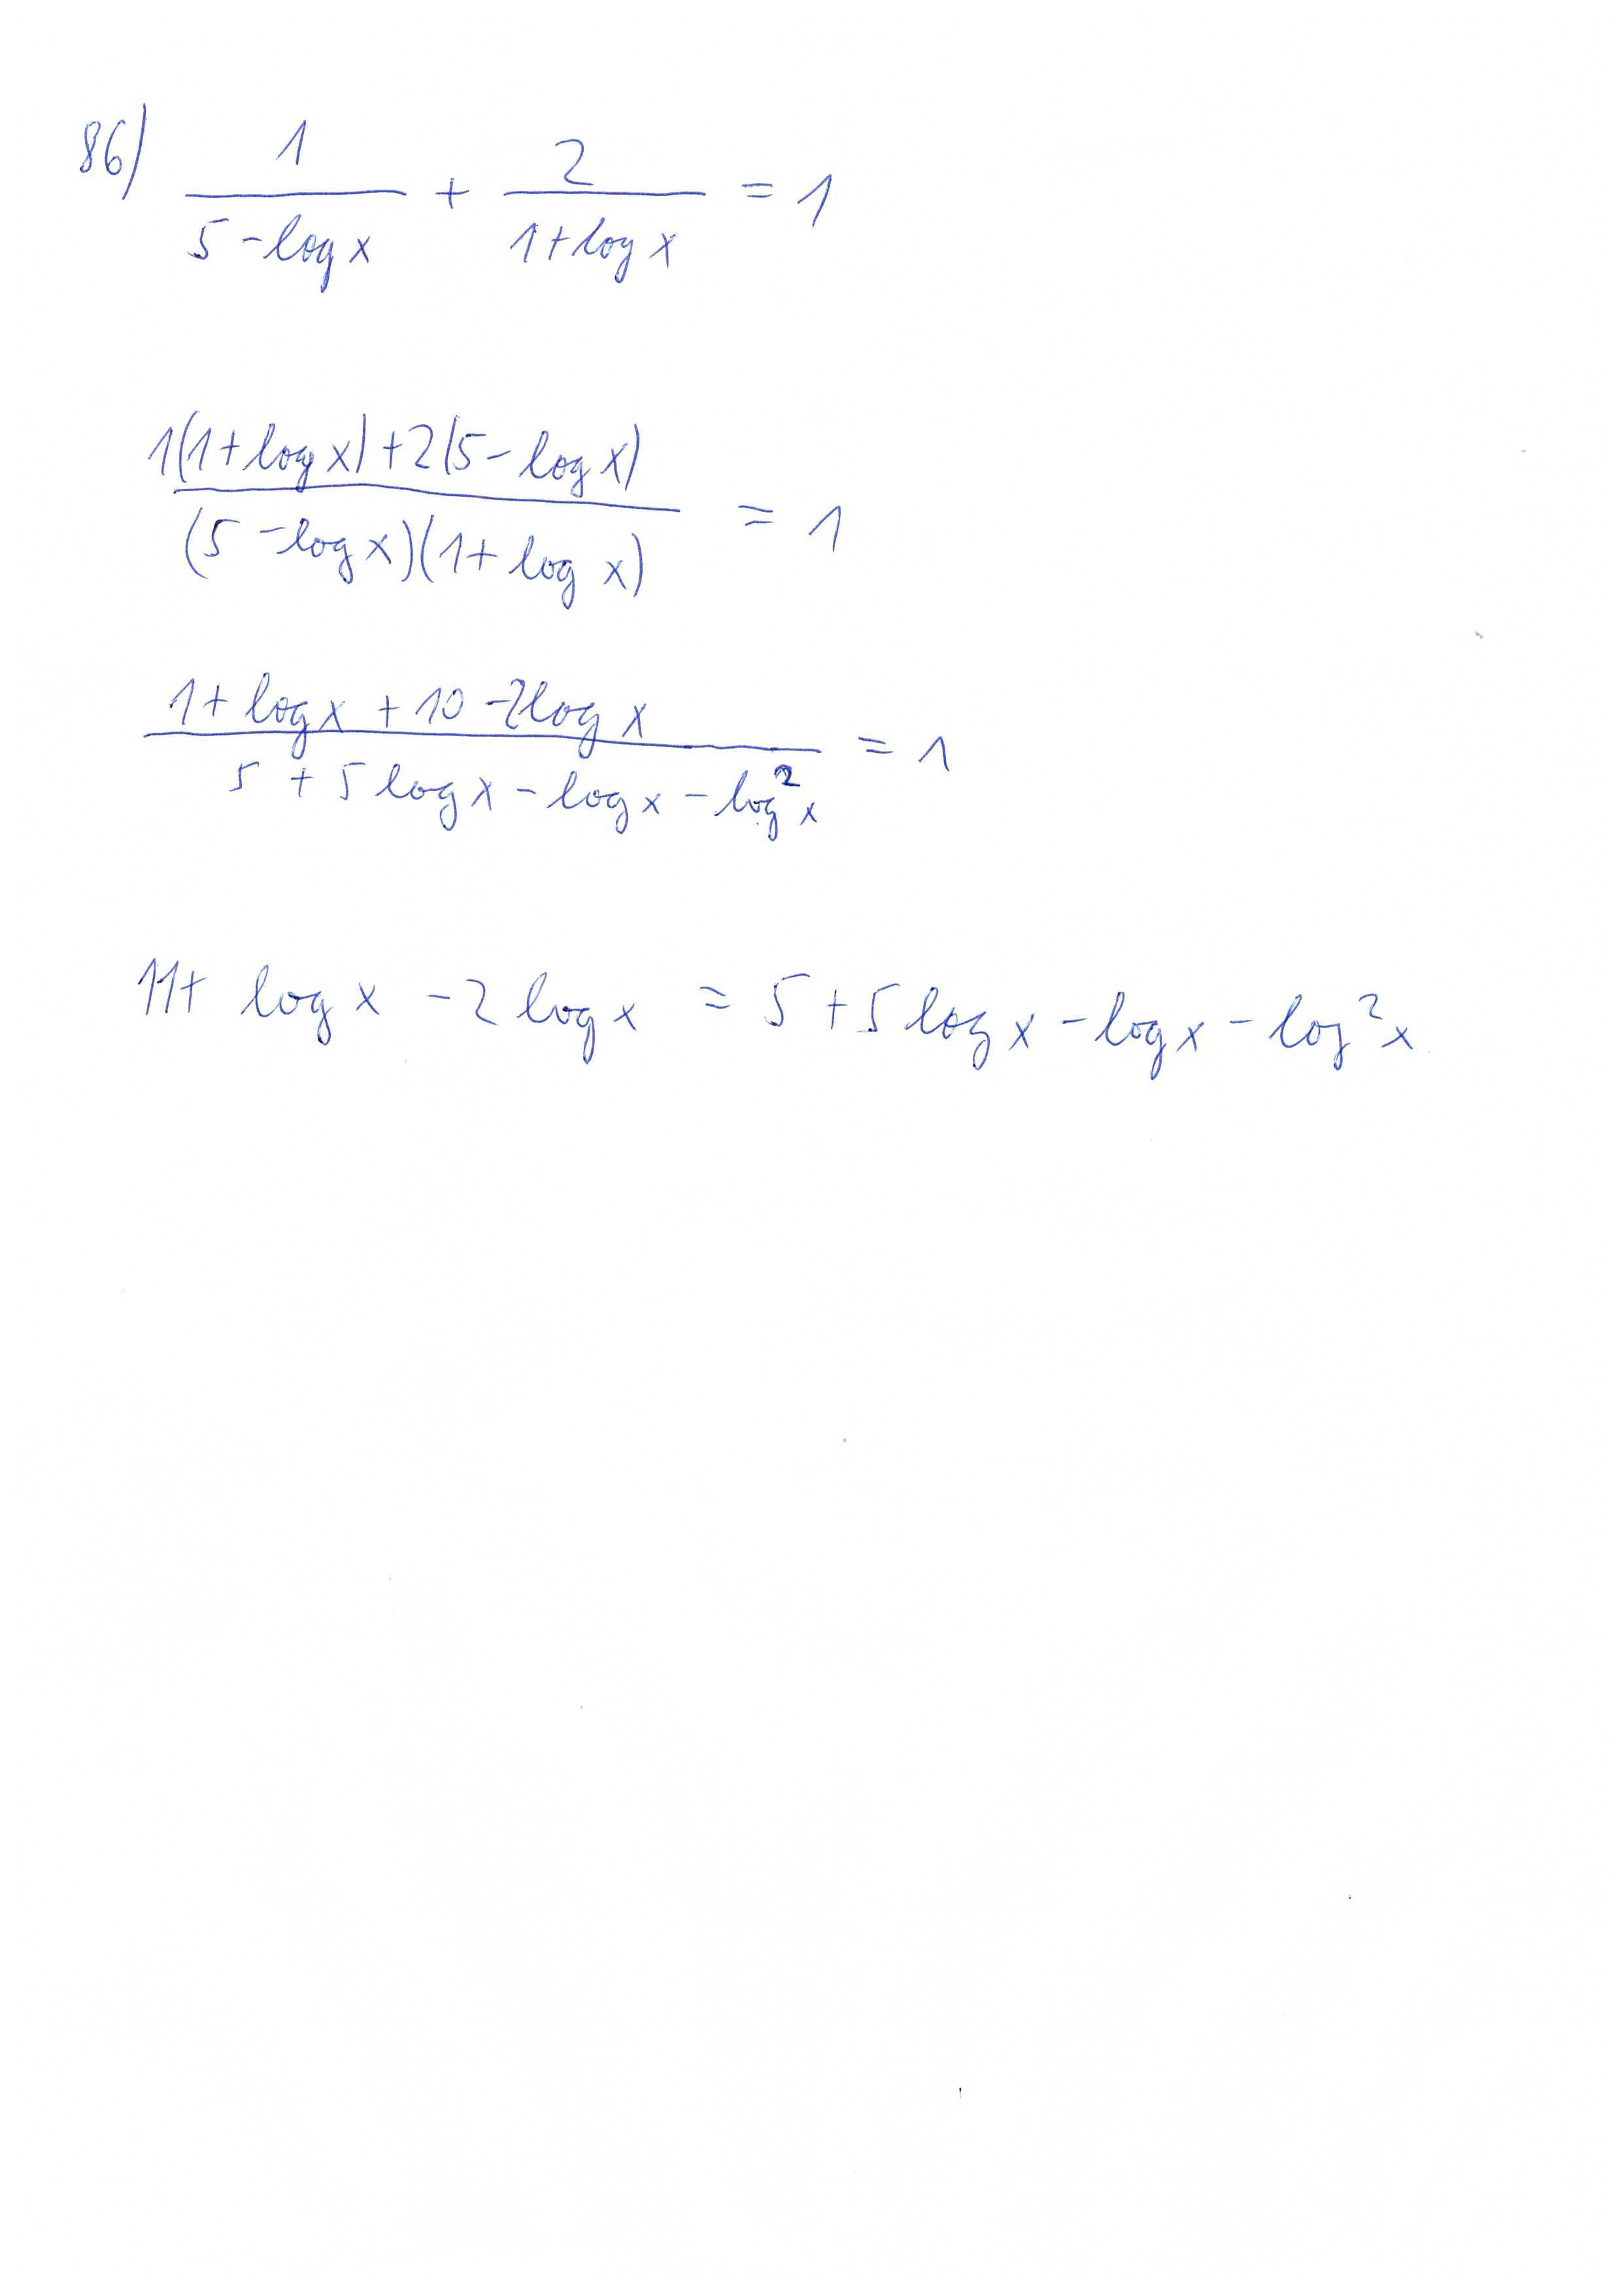 86) 1/(5 - log x) + 2/(1 + log x) = 1
(1(1 + log x) + 2(5 - log x))/((5 - log x)(1 + log x)) = 1
(1 + log x + 10 - 2log x)/(5 + 5 log x - log x - log² x) = 1
11 + log x - 2 log x = 5 + 5 log x - log x - log² x